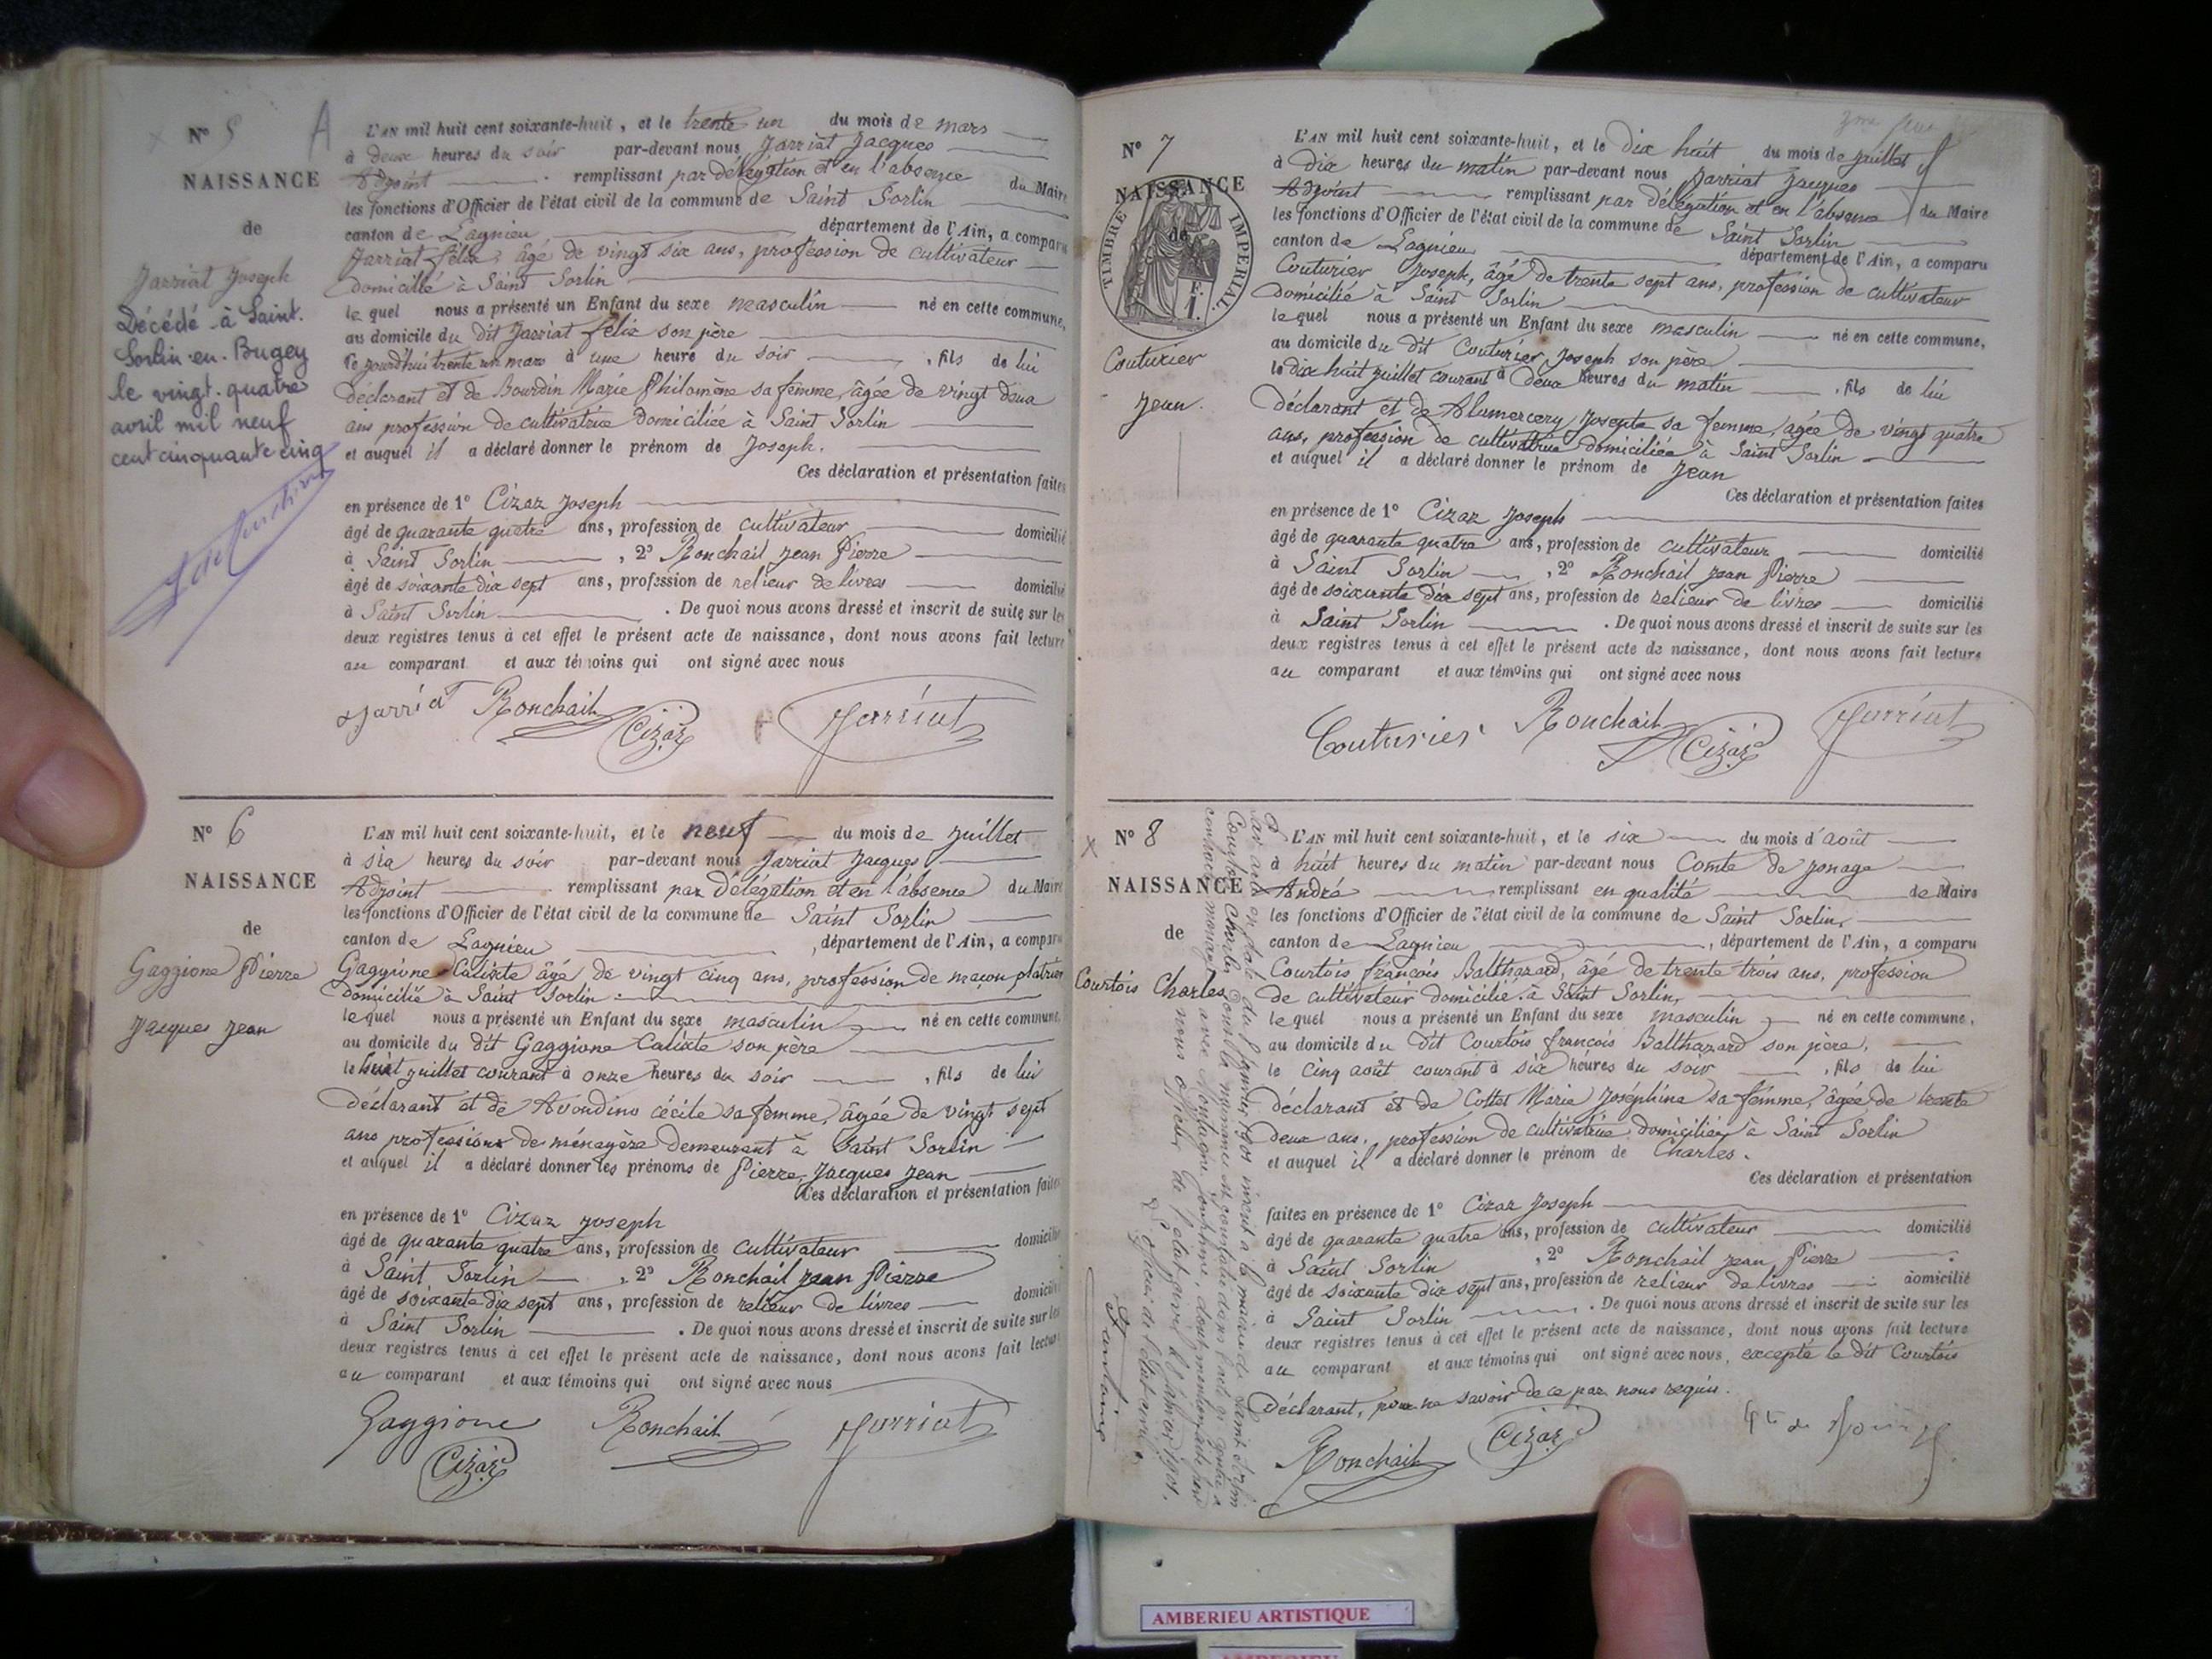 N° 5
A
NAISSANCE
de
Jarriat Joseph
Décédé à Saint.
Sorlin-en-Bugey
le vingt-quatre
avril mil neuf
cent cinquante cinq
L'AN mil huit cent soixante-huit, et le trente un du mois de mars
à deux heures du soir par-devant nous Jarriat Jacques
Adjoint remplissant par délégation et en l'absence du Maire
les fonctions d'Officier de l'état civil de la commune de Saint Sorlin
canton de Lagnieu département de l'Ain, a comparu
Jarriat félix, âgé de vingt six ans, profession de cultivateur
domicilié à Saint Sorlin
lequel nous a présenté un Enfant du sexe masculin né en cette commune,
au domicile du dit Jarriat félix son père
ce jourd'hui trente un mars à une heure du soir, fils de lui
déclarant et de Bourdin Marie Philomène sa femme, âgée de vingt deux
ans profession de cultivatrice domiciliée à Saint Sorlin
et auquel il a déclaré donner le prénom de Joseph.
Ces déclaration et présentation faites
en présence de 1° Cizaz Joseph
âgé de quarante quatre ans, profession de cultivateur domicilié
à Saint Sorlin, 2° Ronchail Jean Pierre
âgé de soixante dix sept ans, profession de relieur de livres domicilié
à Saint Sorlin. De quoi nous avons dressé et inscrit de suite sur les
deux registres tenus à cet effet le présent acte de naissance, dont nous avons fait lecture
au comparant et aux témoins qui ont signé avec nous
Jarriat Ronchail Cizaz Jarriat
N° 6
NAISSANCE
de
Gaggione Pierre
Jacques Jean
L'AN mil huit cent soixante-huit, et le neuf du mois de Juillet
à six heures du soir par-devant nous Jarriat Jacques
Adjoint remplissant par délégation et en l'absence du Maire
les fonctions d'Officier de l'état civil de la commune de Saint Sorlin
canton de Lagnieu, département de l'Ain, a comparu
Gaggione Calixte âgé de vingt cinq ans, profession de maçon platrier
domicilié à Saint Sorlin
lequel nous a présenté un Enfant du sexe masculin né en cette commune,
au domicile du dit Gaggione Calixte son père
le huit juillet courant à onze heures du soir, fils de lui
déclarant et de Avondino Cécile sa femme, âgée de vingt sept
ans profession de ménagère demeurant à Saint Sorlin
et auquel il a déclaré donner les prénoms de Pierre, Jacques Jean
Ces déclaration et présentation faites
en présence de 1° Cizaz Joseph
âgé de quarante quatre ans, profession de cultivateur domicilié
à Saint Sorlin, 2° Ronchail Jean Pierre
âgé de soixante dix sept ans, profession de relieur de livres domicilié
à Saint Sorlin. De quoi nous avons dressé et inscrit de suite sur les
deux registres tenus à cet effet le présent acte de naissance, dont nous avons fait lecture
au comparant et aux témoins qui ont signé avec nous
Gaggione Ronchail Jarriat
Cizaz
N° 7
NAISSANCE
de
TIMBRE IMPÉRIAL
1 F.
Couturier
Jean.
L'AN mil huit cent soixante-huit, et le dix huit du mois de juillet
à dix heures du matin par-devant nous Jarriat Jacques
Adjoint remplissant par délégation et en l'absence du Maire
les fonctions d'Officier de l'état civil de la commune de Saint Sorlin
canton de Lagnieu département de l'Ain, a comparu
Couturier Joseph, âgé de trente sept ans, profession de cultivateur
domicilié à Saint Sorlin
lequel nous a présenté un Enfant du sexe masculin né en cette commune,
au domicile du dit Couturier Joseph son père
le dix huit juillet courant à deux heures du matin, fils de lui
déclarant et de Alumercery Josepte sa femme, âgée de vingt quatre
ans, profession de cultivatrice domiciliée à Saint Sorlin
et auquel il a déclaré donner le prénom de Jean
Ces déclaration et présentation faites
en présence de 1° Cizaz Joseph
âgé de quarante quatre ans, profession de cultivateur domicilié
à Saint Sorlin, 2° Ronchail Jean Pierre
âgé de soixante dix sept ans, profession de relieur de livres domicilié
à Saint Sorlin. De quoi nous avons dressé et inscrit de suite sur les
deux registres tenus à cet effet le présent acte de naissance, dont nous avons fait lecture
au comparant et aux témoins qui ont signé avec nous
Couturier Ronchail Cizaz Jarriat
N° 8
NAISSANCE
de
Courtois Charles
L'AN mil huit cent soixante-huit, et le six du mois d'août
à huit heures du matin par-devant nous Comte de Jonage
André remplissant en qualité de Maire
les fonctions d'Officier de l'état civil de la commune de Saint Sorlin,
canton de Lagnieu, département de l'Ain, a comparu
Courtois françois Balthazard, âgé de trente trois ans, profession
de cultivateur domicilié à Saint Sorlin,
lequel nous a présenté un Enfant du sexe masculin né en cette commune,
au domicile du dit Courtois françois Balthazard son père,
le cinq août courant à six heures du soir, fils de lui
déclarant et de Cottet Marie Joséphine sa femme, âgée de trente
deux ans, profession de cultivatrice domiciliée à Saint Sorlin
et auquel il a déclaré donner le prénom de Charles.
Ces déclaration et présentation
faites en présence de 1° Cizaz Joseph
âgé de quarante quatre ans, profession de cultivateur domicilié
à Saint Sorlin, 2° Ronchail Jean Pierre
âgé de soixante dix sept ans, profession de relieur de livres domicilié
à Saint Sorlin. De quoi nous avons dressé et inscrit de suite sur les
deux registres tenus à cet effet le présent acte de naissance, dont nous avons fait lecture
au comparant et aux témoins qui ont signé avec nous, excepté le dit Courtois
Déclarant, pour ne savoir de ce par nous requis.
Ronchail Cizaz
Par acte en date du 1901 inscrit à la mairie de Saint Sorlin
Courtois Charles
nous officier de l'état civil le 1901.
L'officier de l'état civil
AMBERIEU ARTISTIQUE
AMBERIEU